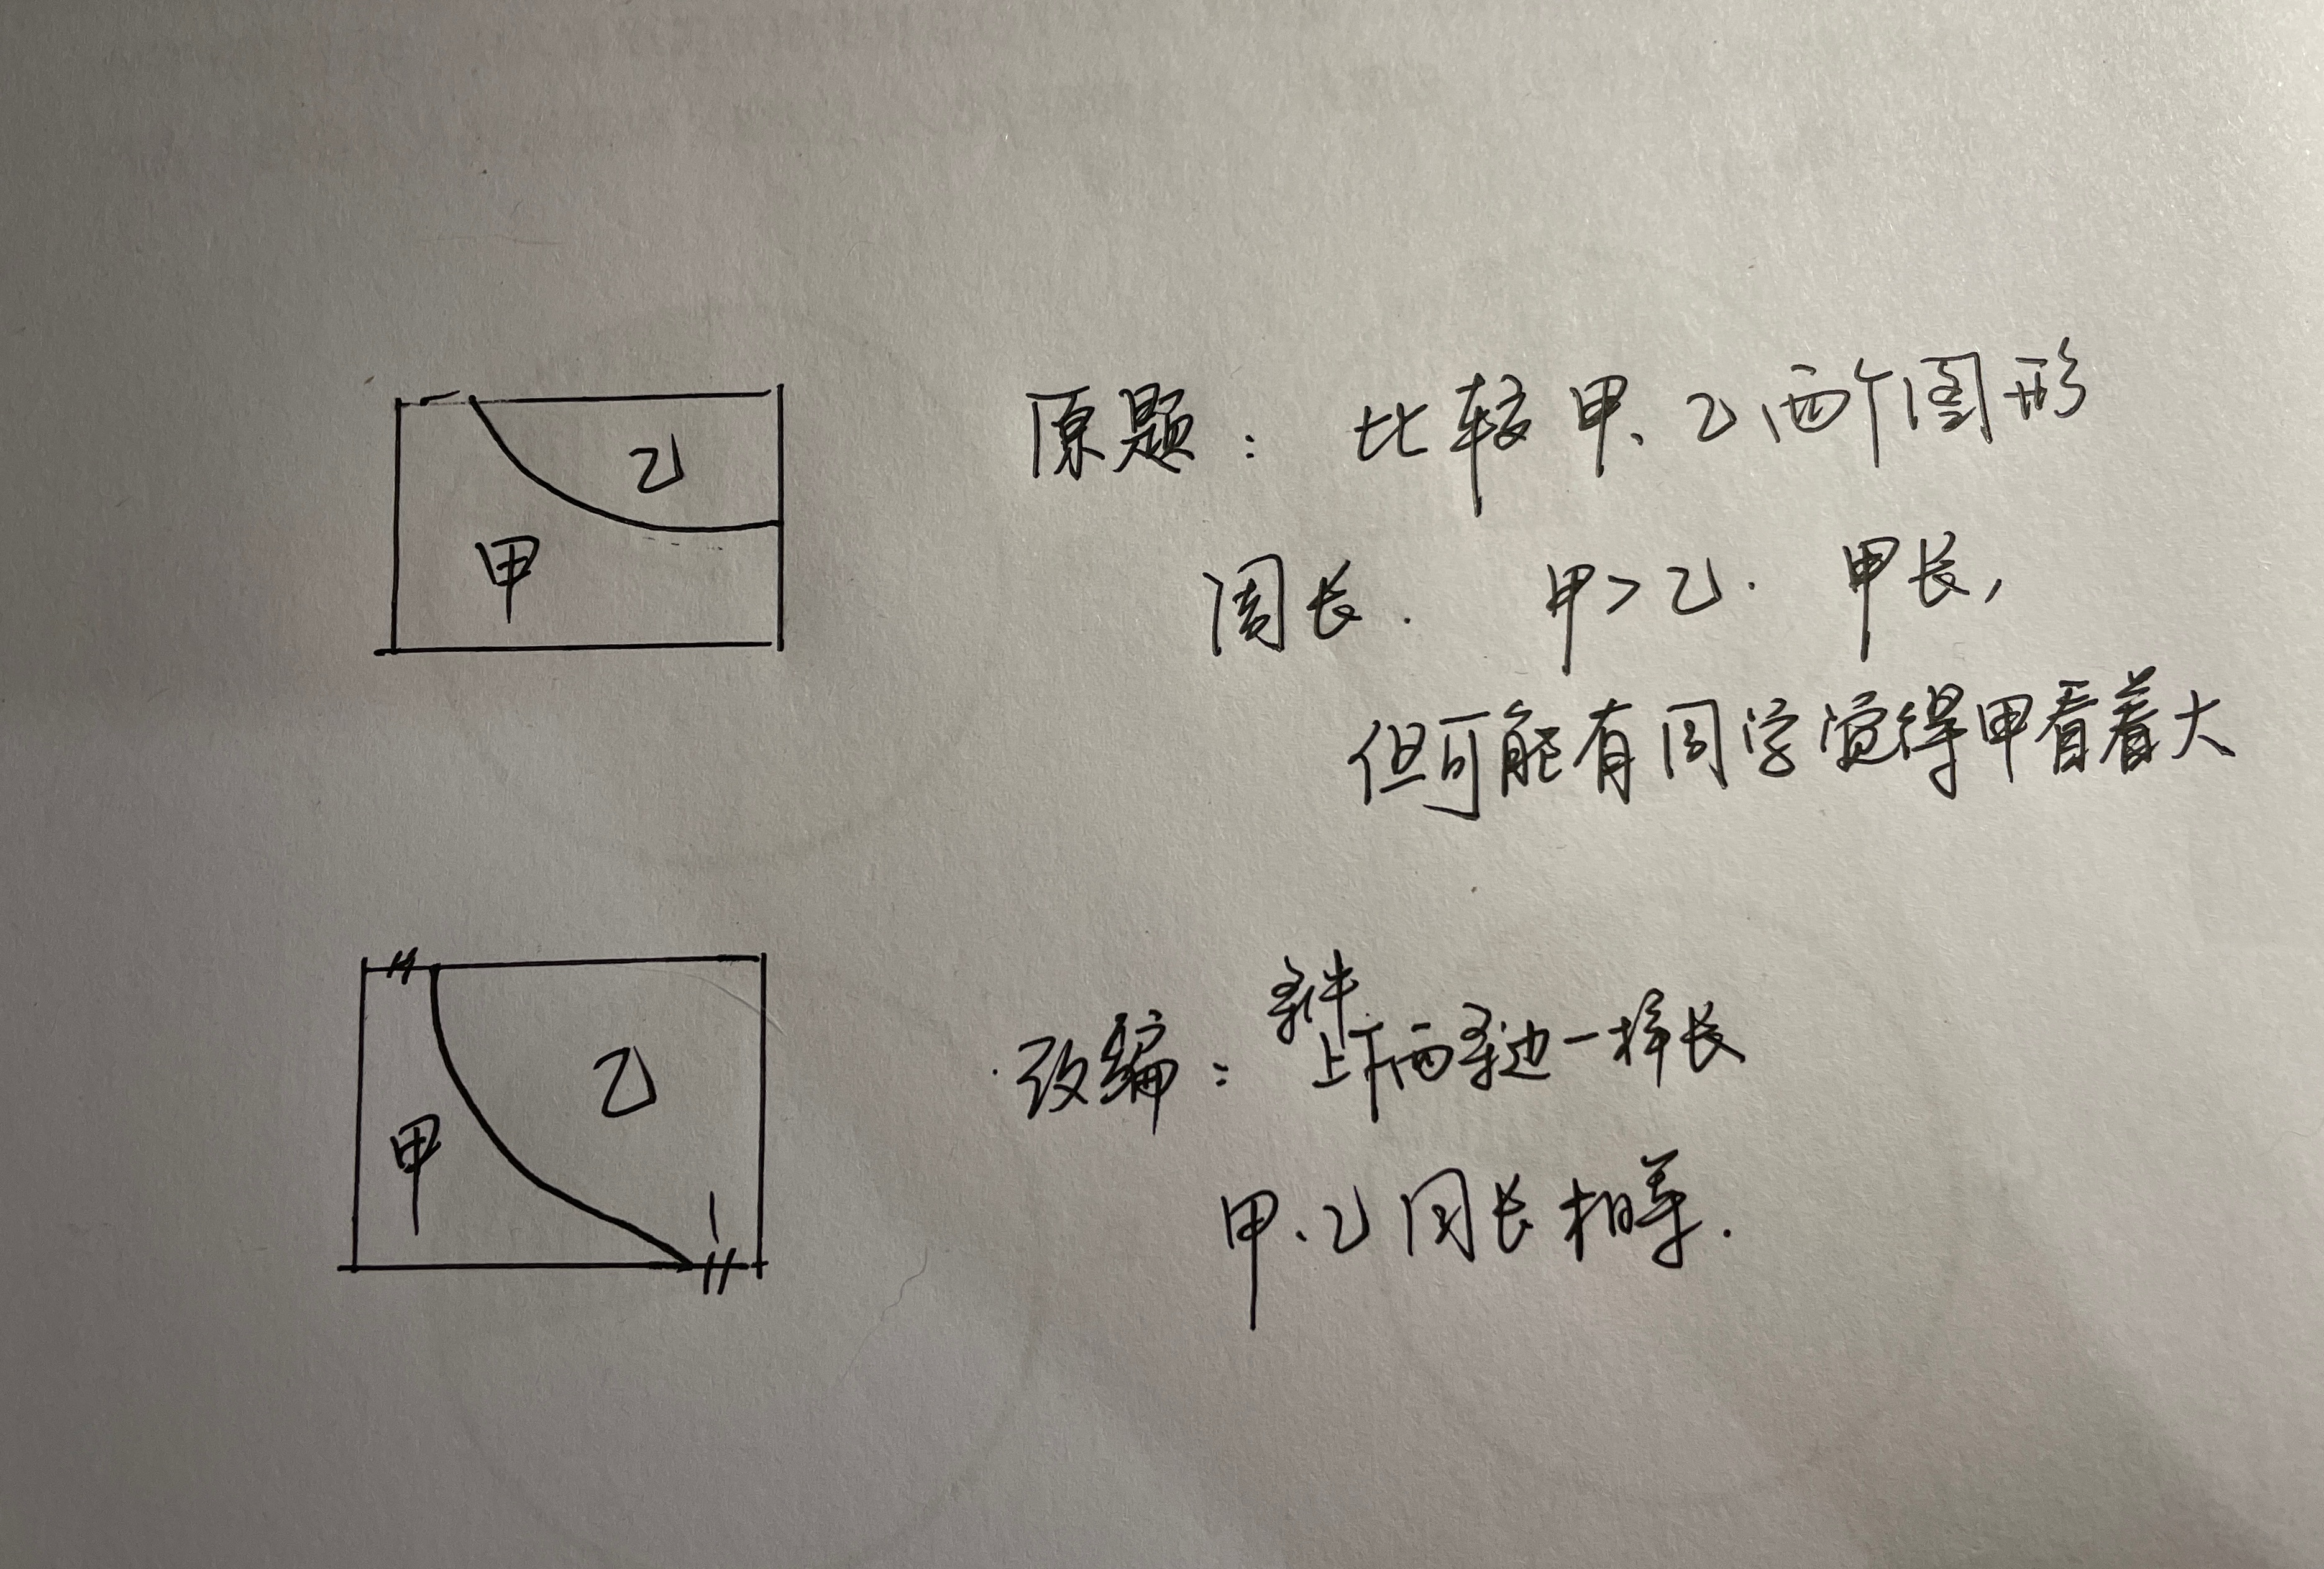 乙
甲
原题：比较甲、乙两个图形
周长. 甲>乙. 甲长,
但可能有同学觉得甲看着大
乙
甲
条件
改编：上下两条边一样长
甲、乙周长相等.